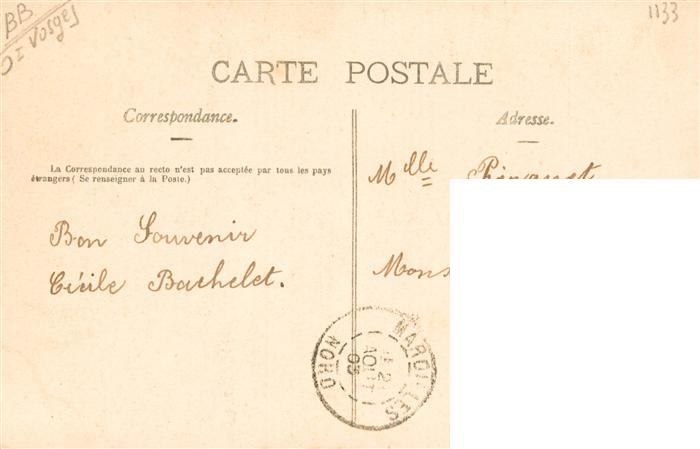 BB
Vosges
1133
CARTE POSTALE
Correspondance.
La Correspondance au recto n'est pas acceptée par tous les pays
étrangers (Se renseigner à la Poste.)
Bon Souvenir
Cécile Bachelet.
Adresse.
Mlle
Mons
MAROILLES
AOUT
NORD